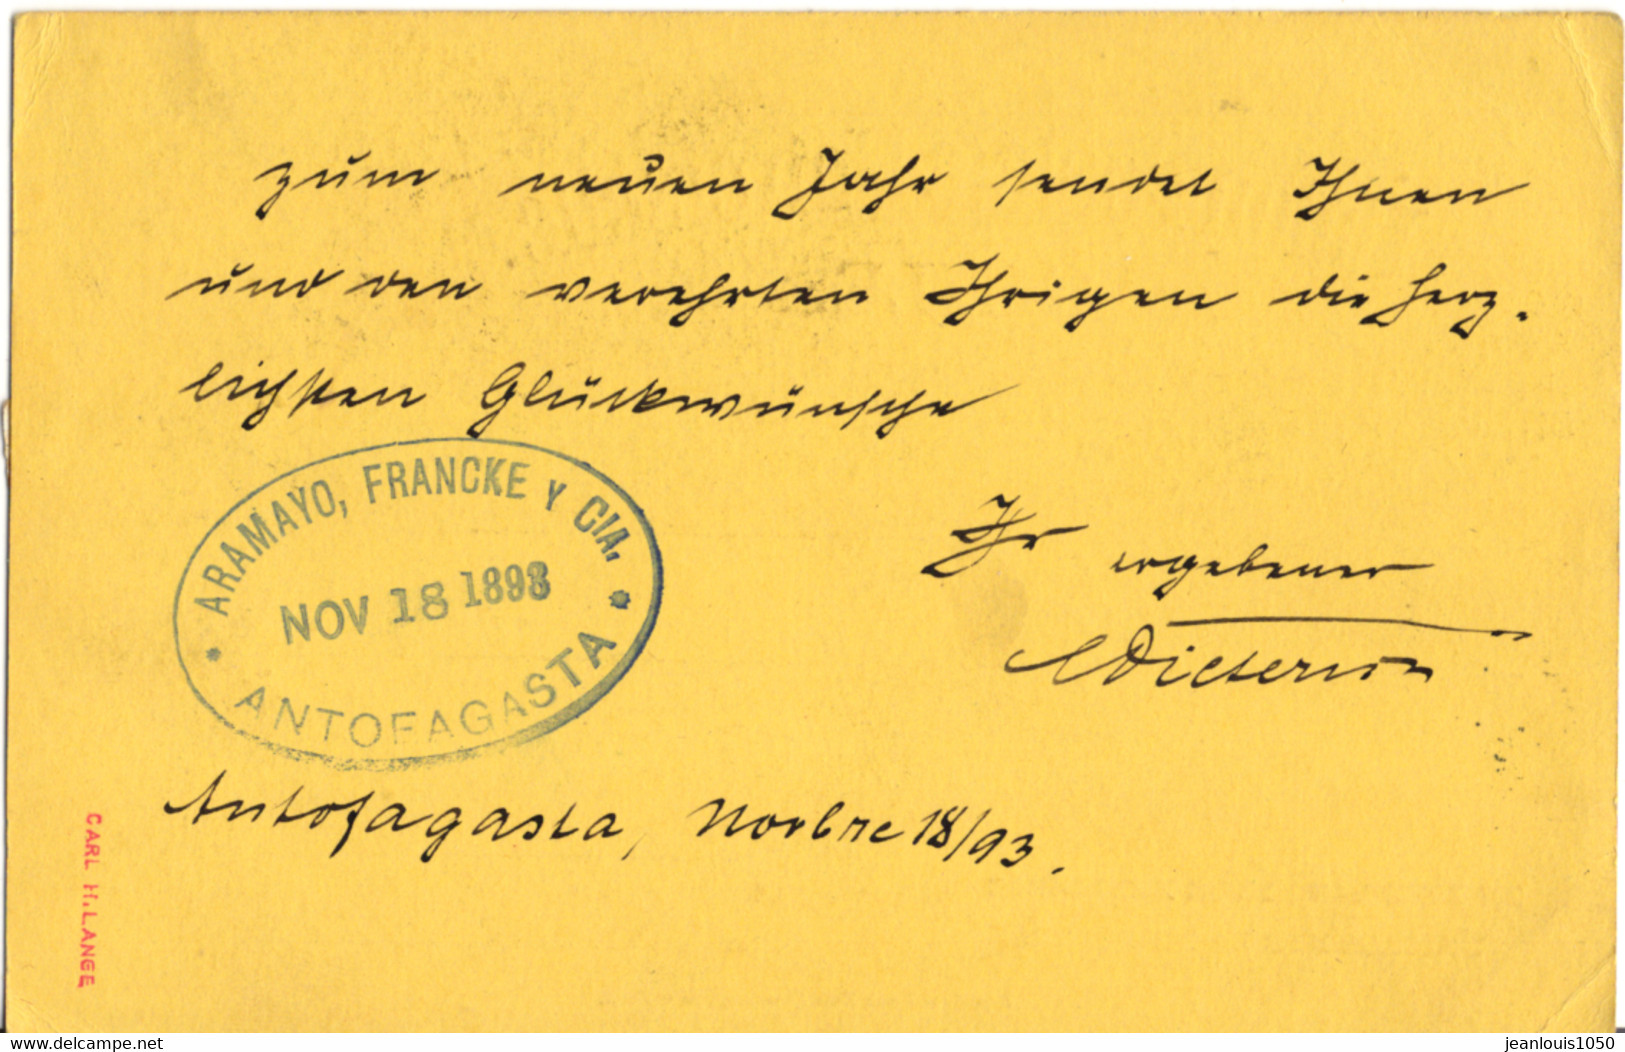 zum neuen Jahr sendet Ihnen
und den verehrten Ihrigen die herz-
lichsten Glückwünsche
ARAMAYO, FRANCKE Y CIA.
NOV 18 1893
ANTOFAGASTA
Ihr ergebener
Antofagasta, Novbre 18/93.
CARL H. LANGE
www.delcampe.net
jeanlouis1050